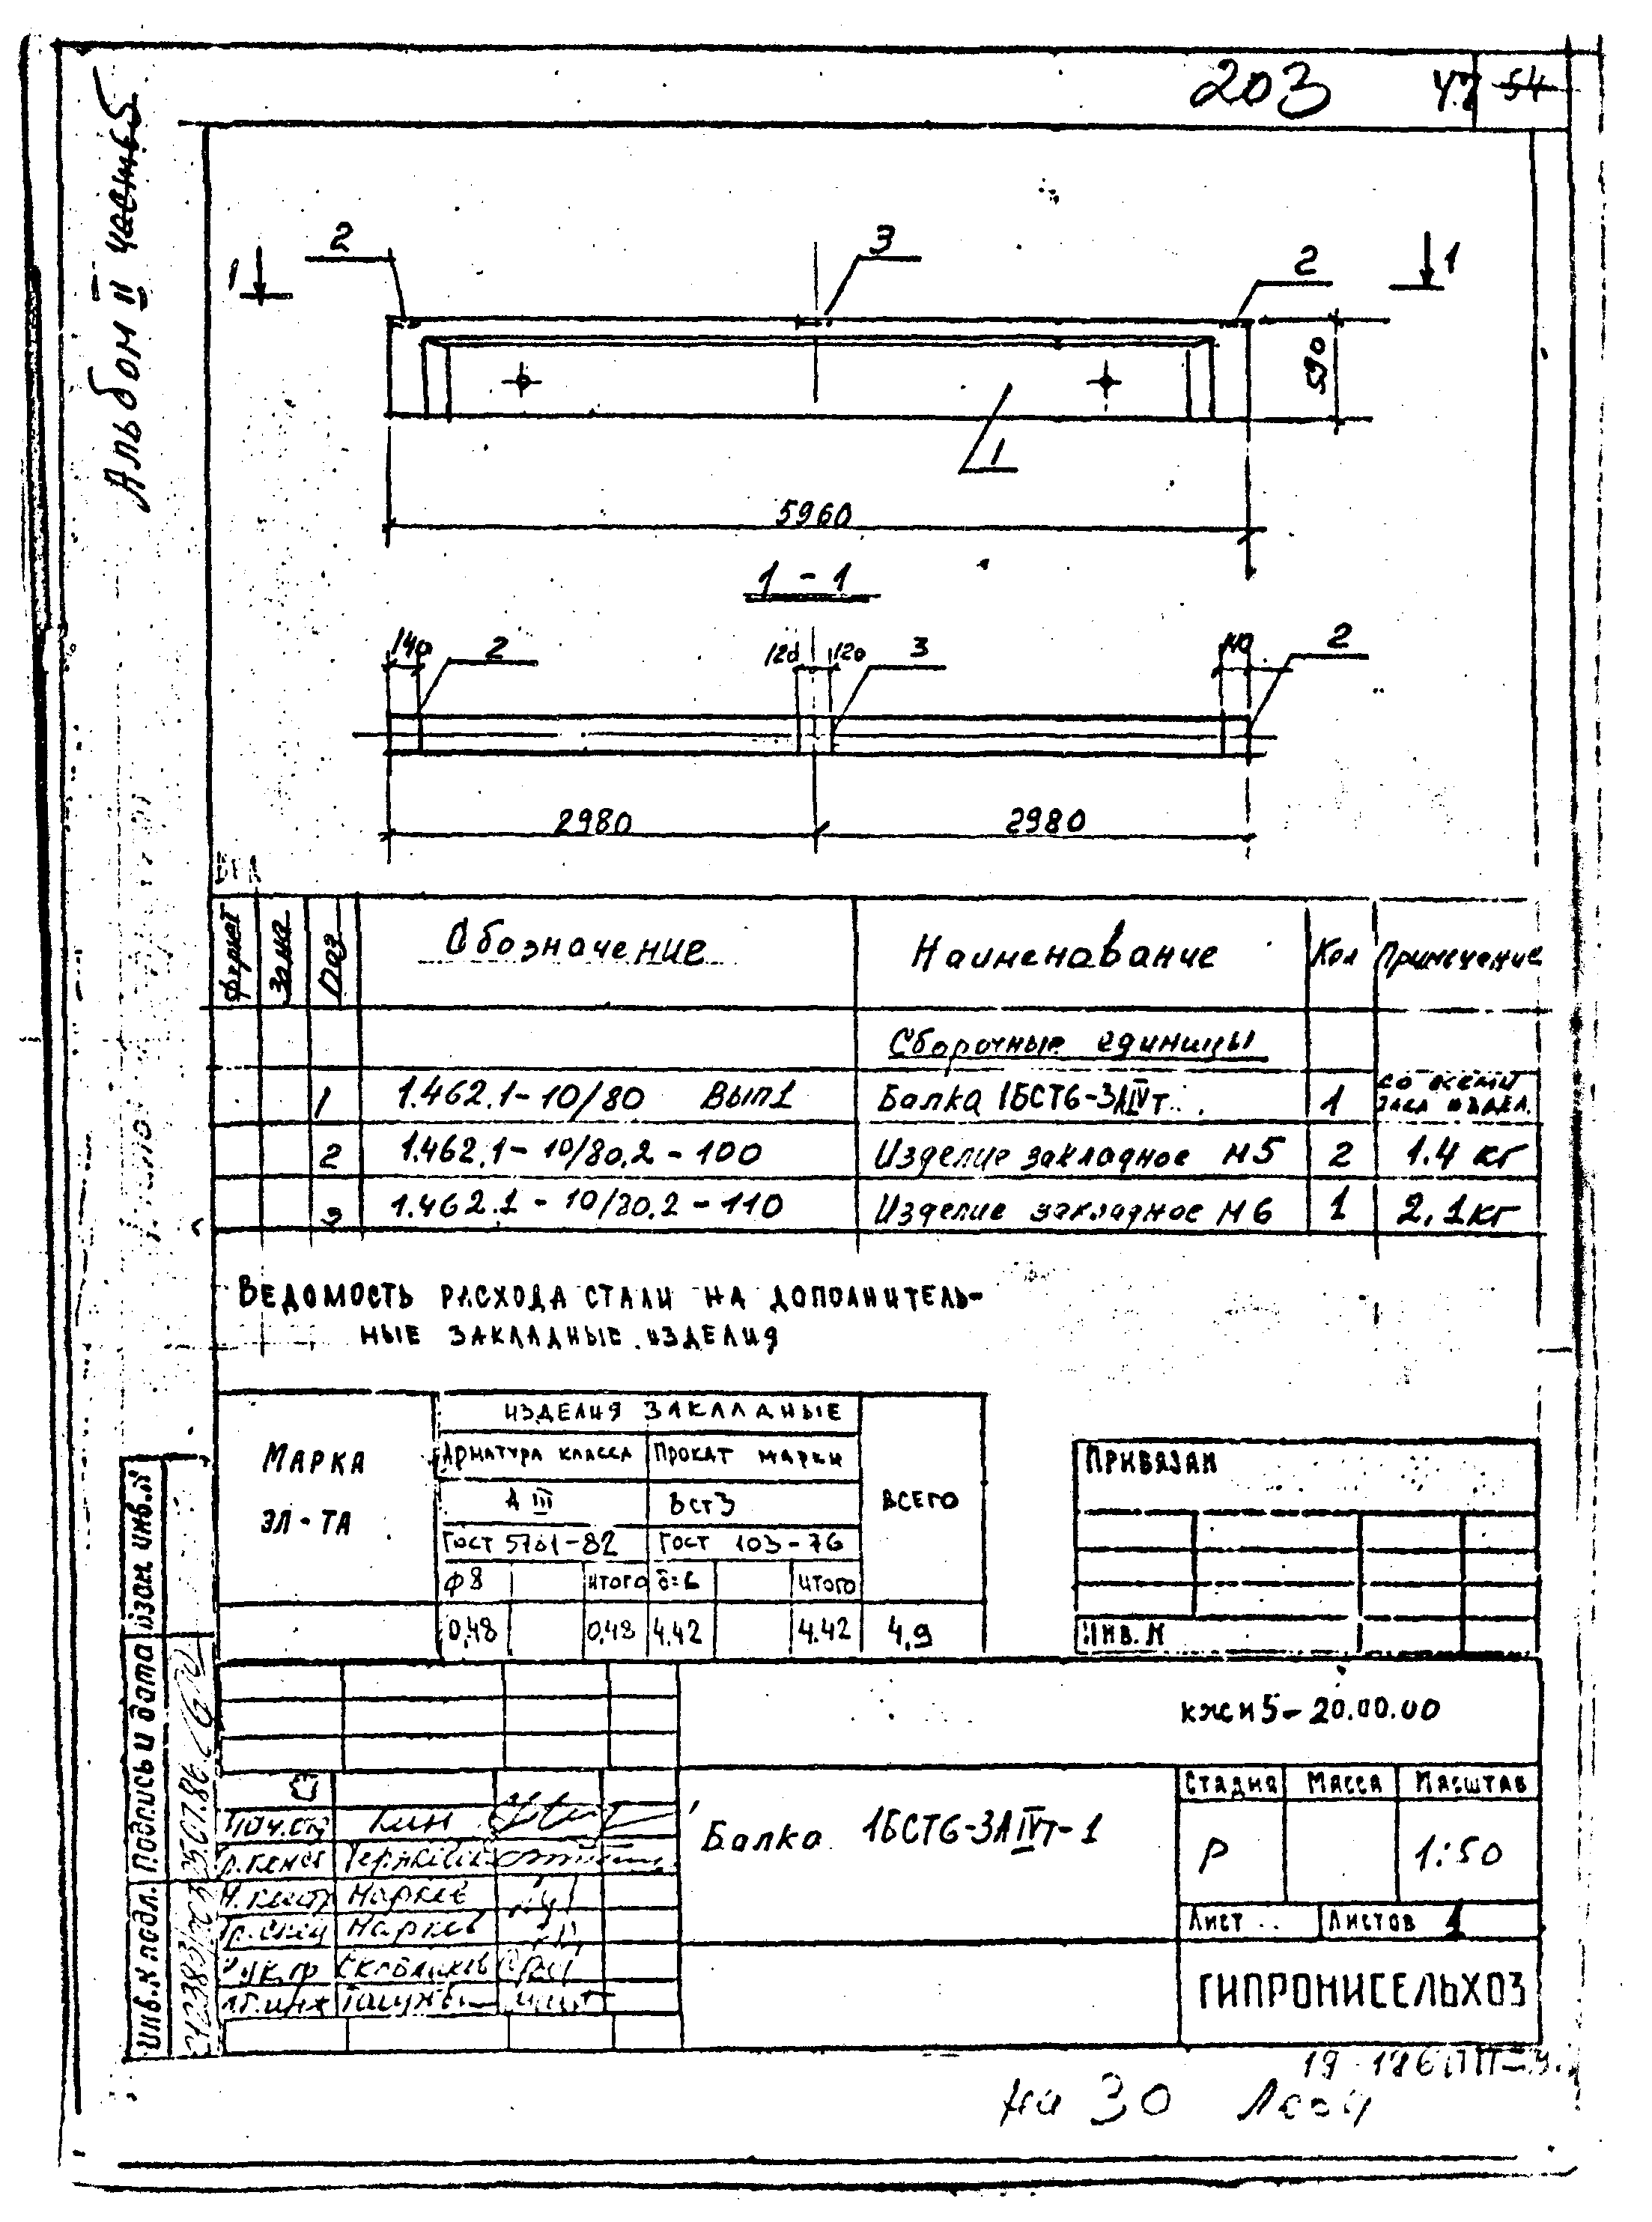 203
47 54
Альбом II часть 5
2
3
2
1
1
590
1
5960
1 - 1
140
2
120
120
3
140
2
2980
2980
Формат Зона Поз Обозначение Наименование Кол Примечание
Сборочные единицы
1 1.462.1-10/80 Вып1 Балка 1БСТ6-3АIVт 1
2 1.462.1-10/80.2-100 Изделие закладное М5 2 1.4 кг
3 1.462.1-10/80.2-110 Изделие закладное М6 1 2.1кг
Ведомость расхода стали на дополнитель-
ные закладные изделия
Марка
эл-та
Изделия закладные
Арматура класса Прокат марки
АIII ВСт3
Всего
Гост 5781-82 Гост 103-76
ф8 Итого δ=6 Итого
0,48 0,48 4.42 4.42 4,9
Привязан
Инв. N
КЖИ5-20.00.00
Балка 1БСТ6-3АIVт-1
Стадия Масса Масштаб
Р 1:50
Лист Листов 1
ГИПРОНИСЕЛЬХОЗ
Нач.отд Кин
Марков
Взам. инв. N
Подпись и дата
25.07.86
Инв. N подл.